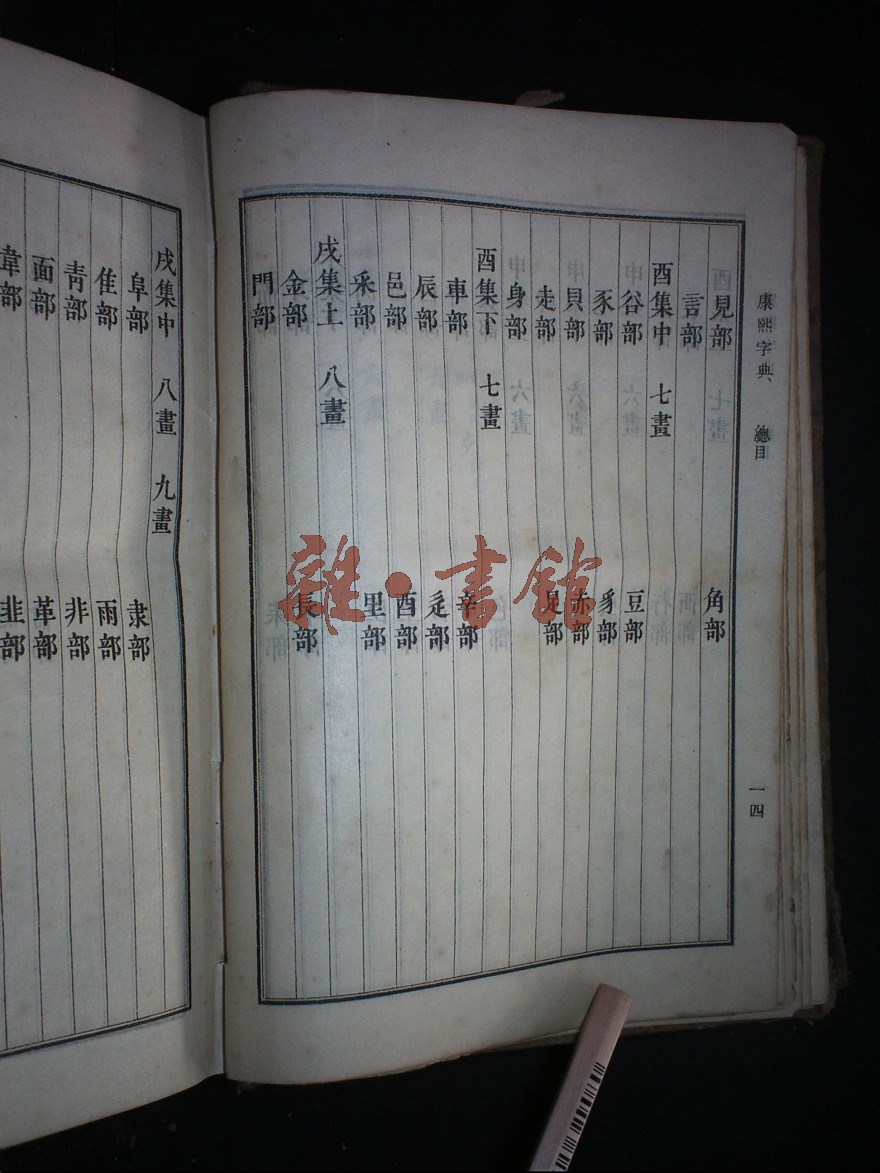 康熙字典 總目 一四
見部 角部
言部
酉集中 七畫
谷部 豆部
豕部 豸部
貝部 赤部
走部 足部
身部
酉集下 七畫
車部 辛部
辰部 辵部
邑部 酉部
釆部 里部
戌集上 八畫
金部 長部
門部
戌集中 八畫 九畫
阜部 隶部
隹部 雨部
靑部 非部
面部 革部
韋部 韭部
雜·書館